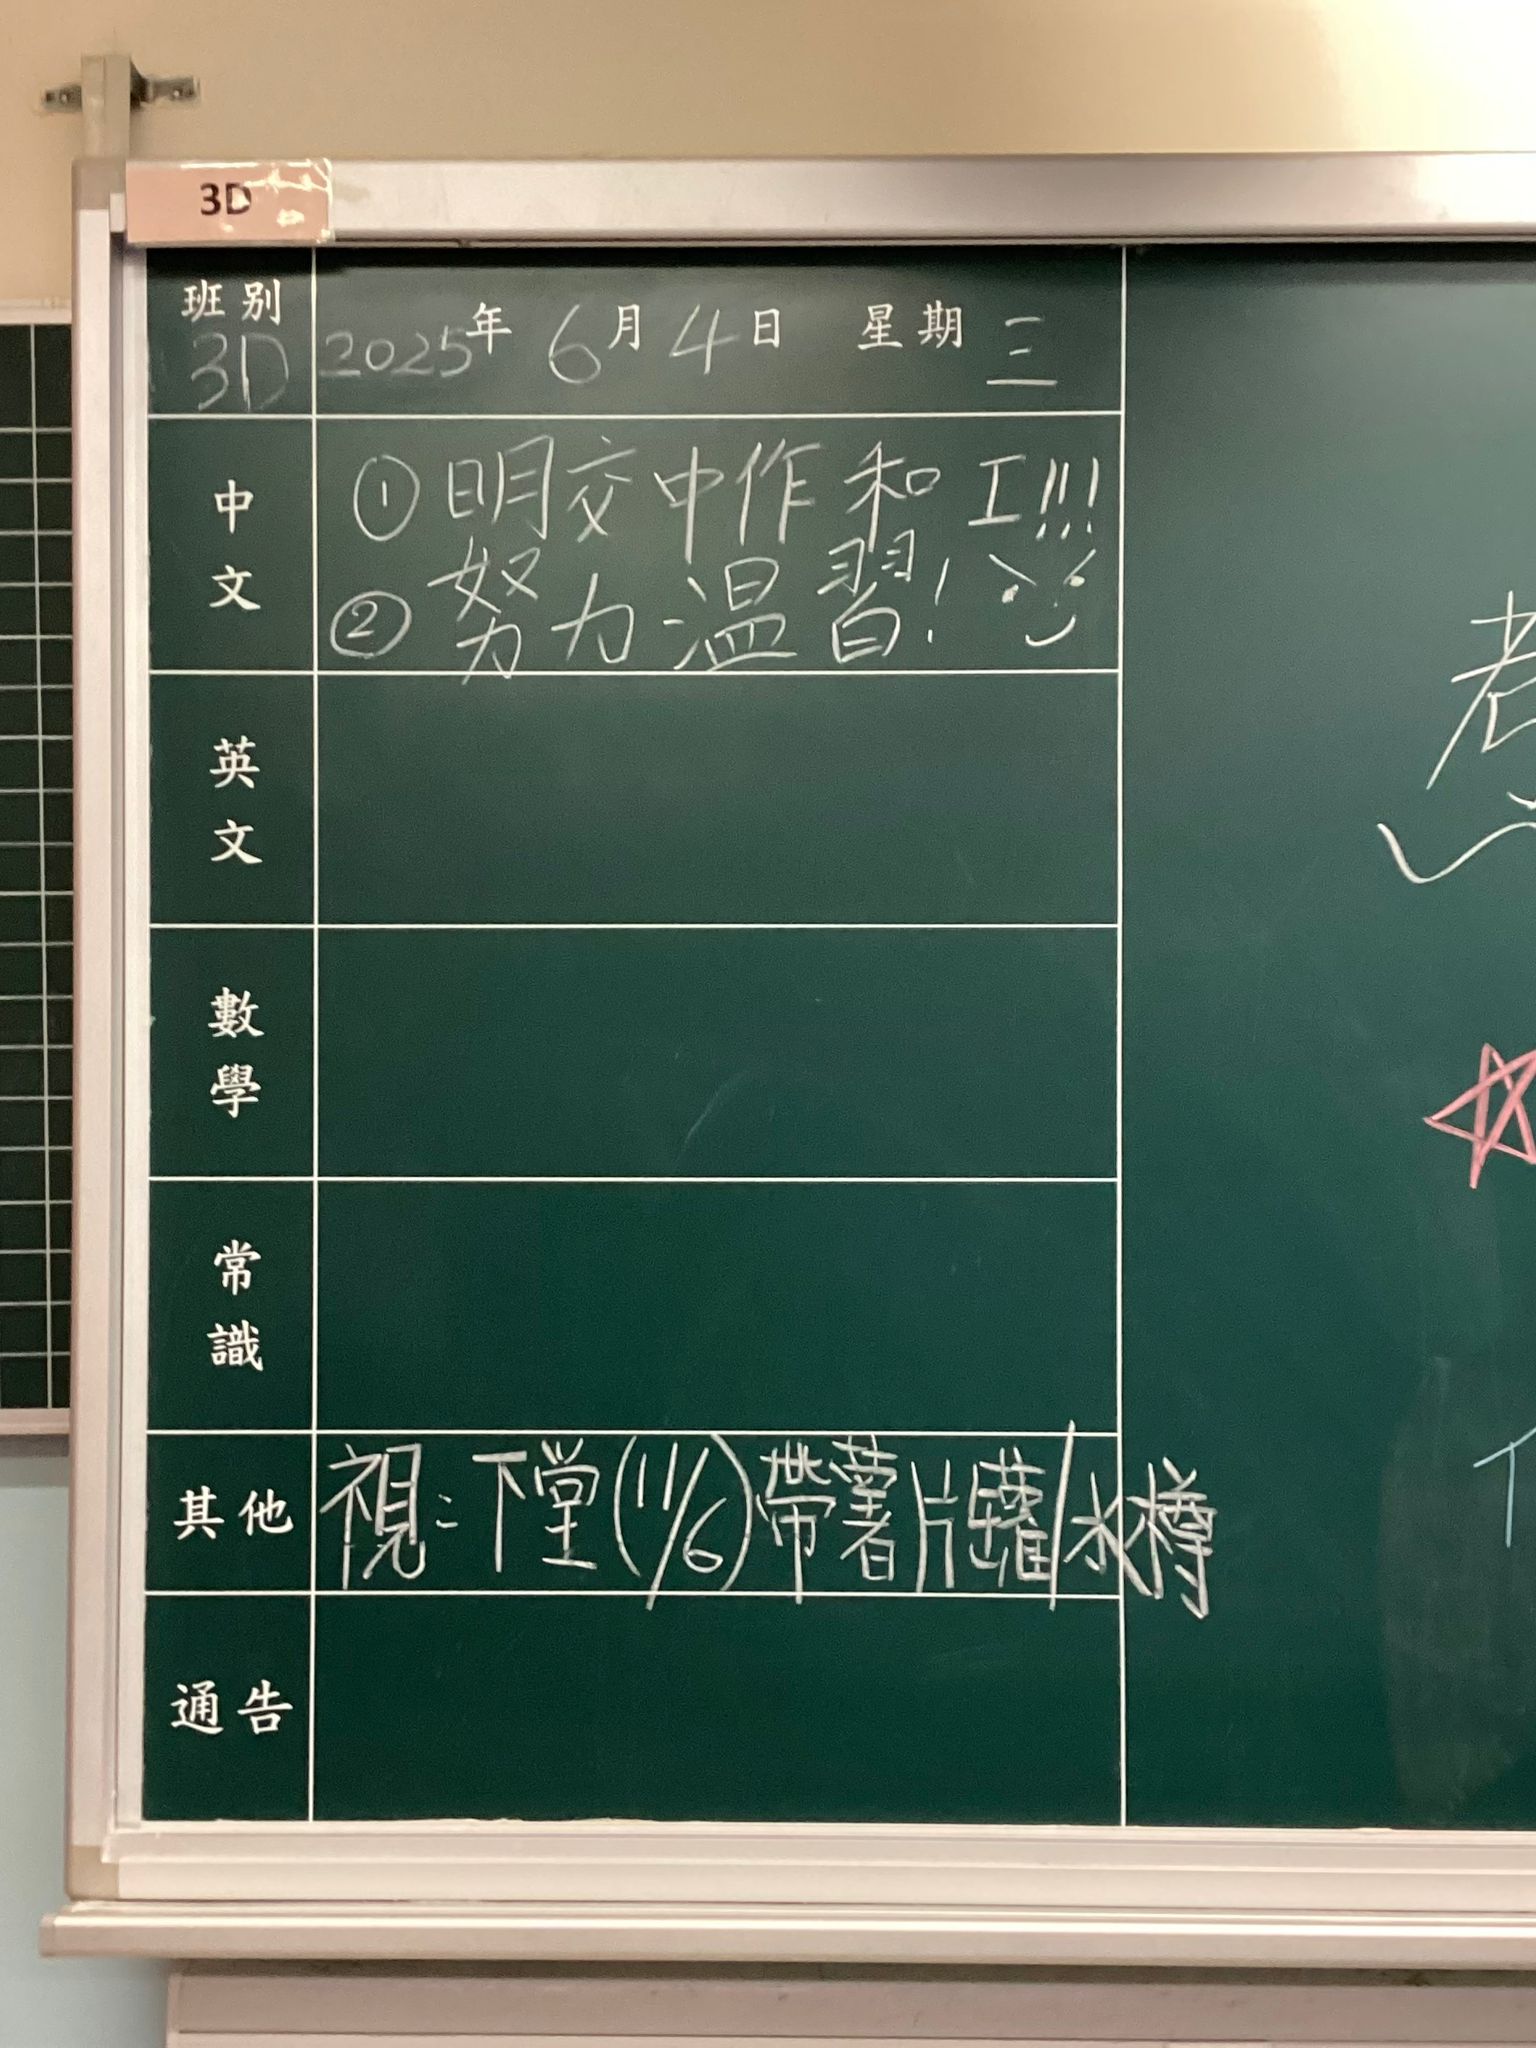 3D
班別 2025年6月4日 星期三
3D
中文 ①明交中作和工!!!
②努力温習!
英文
數學
常識
其他 視:下堂(11/6)帶薯片罐/水樽
通告
考